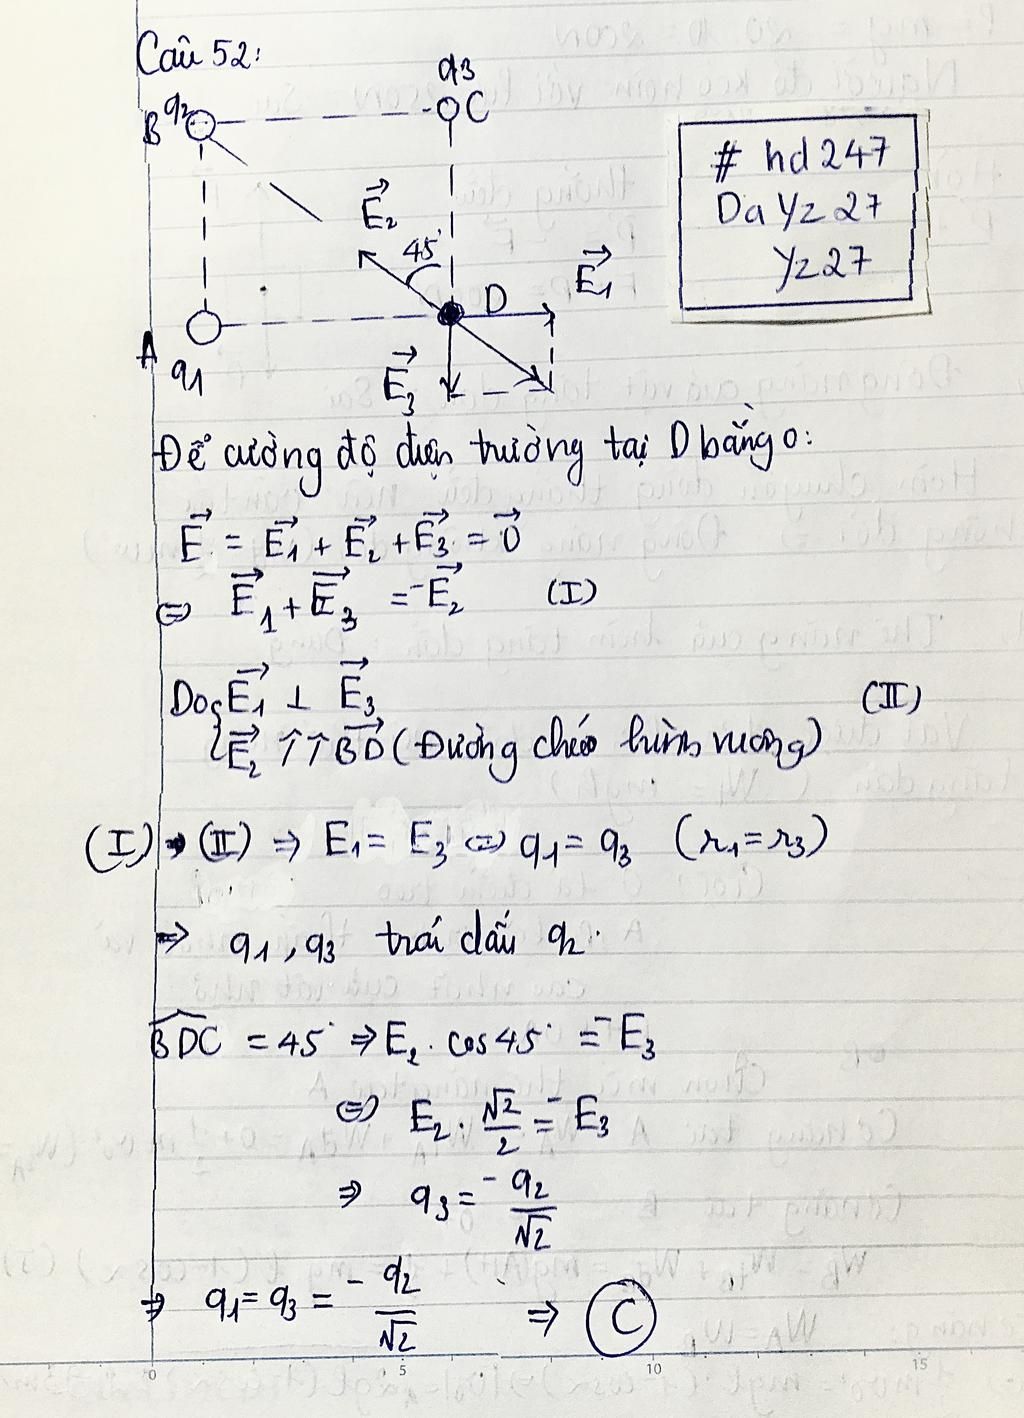 Câu 52:
q3
B q2 C
# hd 247
Da Yz 27
Yz27
E₂
45°
E₁
D
A q1
E₃
Để cường độ điện trường tại D bằng 0:
E = E₁ + E₂ + E₃ = 0
⇔ E₁ + E₃ = -E₂ (I)
Do { E₁ ⊥ E₃ (II)
E₂ ↑↑ BD (Đường chéo hình vuông)
(I) → (II) ⇒ E₁ = E₃ ⇔ q1 = q3 (r1 = r3)
⇒ q1, q3 trái dấu q2.
BDC = 45° ⇒ E₂ . cos 45° = -E₃
⇔ E₂ . √2/2 = -E₃
⇒ q3 = -q2/√2
⇒ q1 = q3 = -q2/√2 ⇒ C
0 5 10 15